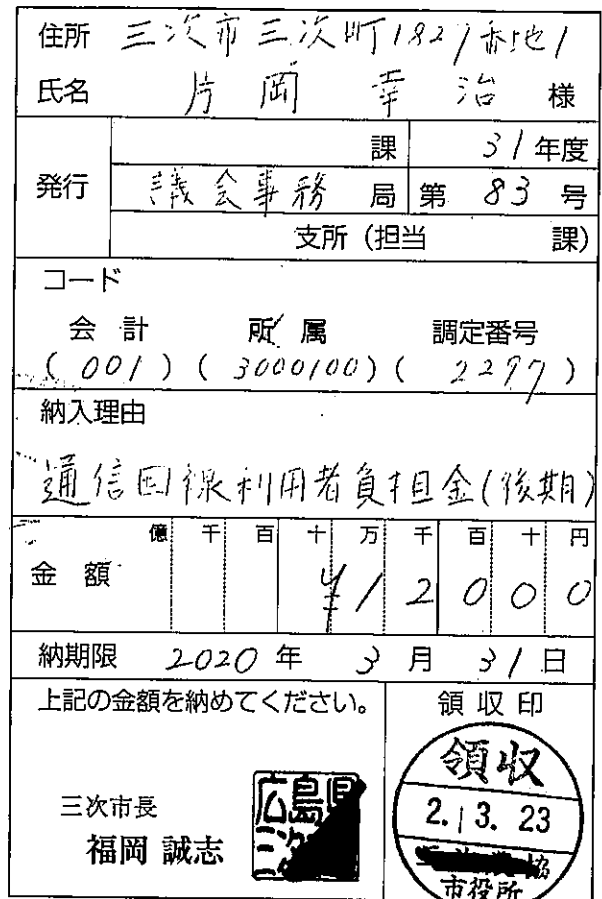 住所 三次市三次町1827番地1
氏名 片岡 幸治 様
発行 課 31年度
議会事務局 第 83 号
支所（担当 課）
コード
会計 所属 調定番号
(001) (3000100) (2297)
納入理由
通信回線利用者負担金(後期)
億 千 百 十 万 千 百 十 円
金額 ¥12000
納期限 2020年 3月 31日
上記の金額を納めてください。 領収印
三次市長
福岡 誠志
広島県
三次
領収
2. 3. 23
協
市役所